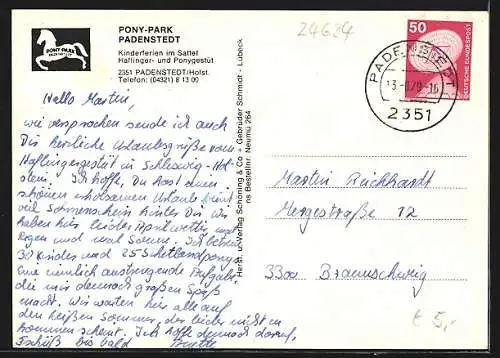 PONY-PARK
PADENSTEDT
Kinderferien im Sattel
Haflinger- und Ponygestüt
2351 PADENSTEDT/Holst.
Telefon: (04321) 8 13 00
PONY PARK
24634
50
DEUTSCHE BUNDESPOST
PADENSTEDT
2351
Hello Martin,
wie versprochen sende ich auch
Dir herzliche Urlaubsgrüße vom
Haflingergestüt in Schleswig-Hol-
stein. Ich hoffe, Du hast einen
schönen erholsamen Urlaub mit
viel Sonnenschein hinter Dir. Wir
haben hier leider Aprilwetter, mal
Regen und mal Sonne. Ich betreue
30 Kinder und 25 Shetlandponys
Eine ziemlich anstrengende Aufgabe,
die mir dennoch großen Spaß
macht. Wir warten hier alle auf
den heißen Sommer, der leider nicht zu
kommen scheint. Ich hoffe dennoch darauf,
Tschüß bis bald
Herst. u. Verlag Schöning & Co + Gebrüder Schmidt - Lübeck
Bestellnr. Neumü 264
Martin Reichhardt
Mergesstraße 12
3300 Braunschweig
€ 5,-